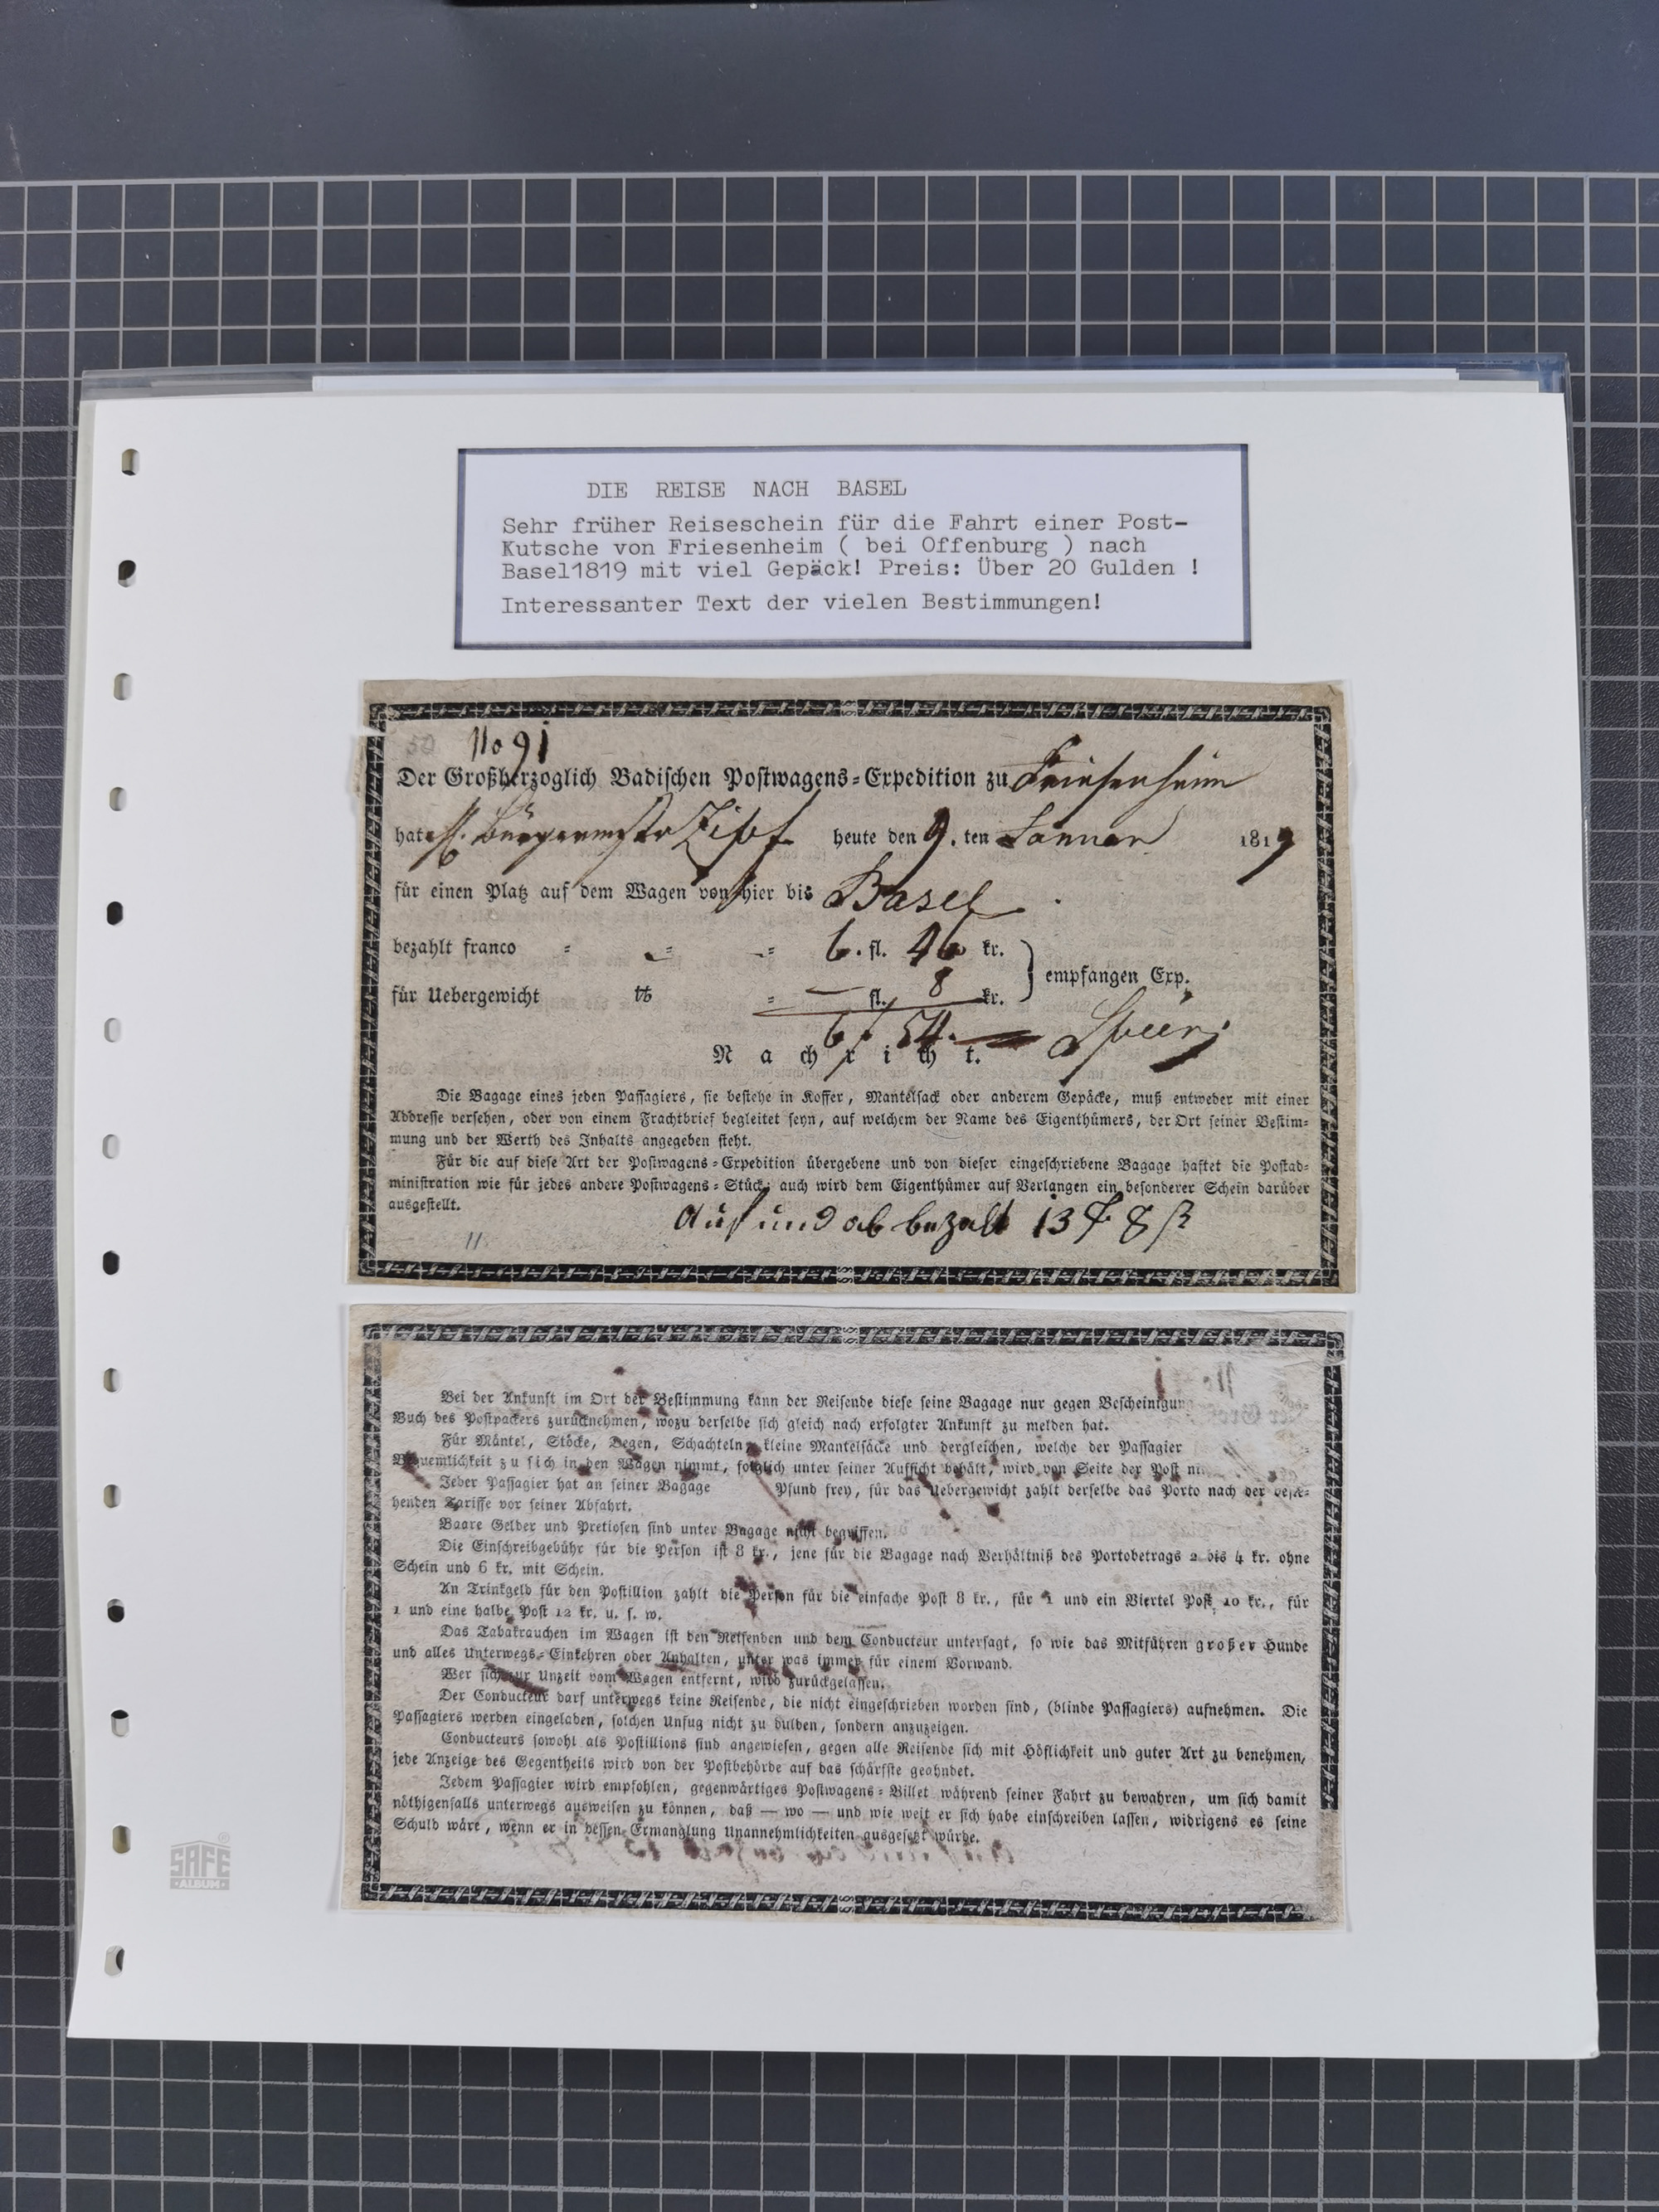 DIE REISE NACH BASEL
Sehr früher Reiseschein für die Fahrt einer Post-
Kutsche von Friesenheim ( bei Offenburg ) nach
Basel1819 mit viel Gepäck! Preis: Über 20 Gulden !
Interessanter Text der vielen Bestimmungen!
50 No 91
Der Großherzoglich Badischen Postwagens=Expedition zu Friesenheim
hat H. Bürgermstr Zipf heute den 9. ten Januar 1819
für einen Platz auf dem Wagen von hier bis Basel
bezahlt franco = = = 6. fl. 46 kr.
empfangen Exp.
für Uebergewicht ℔ = — fl. 8 kr.
6 f 54.
Nachricht.
Die Bagage eines jeden Passagiers, sie bestehe in Koffer, Mantelsack oder anderem Gepäcke, muß entweder mit einer
Addresse versehen, oder von einem Frachtbrief begleitet seyn, auf welchem der Name des Eigenthümers, der Ort seiner Bestim=
mung und der Werth des Inhalts angegeben steht.
Für die auf diese Art der Postwagens=Expedition übergebene und von dieser eingeschriebene Bagage haftet die Postad=
ministration wie für jedes andere Postwagens=Stück; auch wird dem Eigenthümer auf Verlangen ein besonderer Schein darüber
ausgestellt.
Auf und ab bezalt 13 f 8 ß
11
Bei der Ankunft im Ort der Bestimmung kann der Reisende diese seine Bagage nur gegen Bescheinigung
Buch des Postpackers zurücknehmen, wozu derselbe sich gleich nach erfolgter Ankunft zu melden hat.
Für Mäntel, Stöcke, Degen, Schachteln, kleine Mantelsäcke und dergleichen, welche der Passagier
Bequemlichkeit zu sich in den Wagen nimmt, folglich unter seiner Aufsicht behält, wird von Seite der Post
Jeder Passagier hat an seiner Bagage Pfund frey, für das Uebergewicht zahlt derselbe das Porto nach der beste=
henden Tariffe vor seiner Abfahrt.
Baare Gelder und Pretiosen sind unter Bagage nicht begriffen.
Die Einschreibgebühr für die Person ist 8 kr., jene für die Bagage nach Verhältniß des Portobetrags 2 bis 4 kr. ohne
Schein und 6 kr. mit Schein.
An Trinkgeld für den Postillion zahlt die Person für die einfache Post 8 kr., für 1 und ein Viertel Post, 10 kr., für
1 und eine halbe Post 12 kr. u. s. w.
Das Tabakrauchen im Wagen ist den Reisenden und dem Conducteur untersagt, so wie das Mitführen großer Hunde
und alles Unterwegs=Einkehren oder Anhalten, unter was immer für einem Vorwand.
Wer sich zur Unzeit vom Wagen entfernt, wird zurückgelassen.
Der Conducteur darf unterwegs keine Reisende, die nicht eingeschrieben worden sind, (blinde Passagiers) aufnehmen. Die
Passagiers werden eingeladen, solchen Unfug nicht zu dulden, sondern anzuzeigen.
Conducteurs sowohl als Postillions sind angewiesen, gegen alle Reisende sich mit Höflichkeit und guter Art zu benehmen,
jede Anzeige des Gegentheils wird von der Postbehörde auf das schärfste geahndet.
Jedem Passagier wird empfohlen, gegenwärtiges Postwagens=Billet während seiner Fahrt zu bewahren, um sich damit
nöthigenfalls unterwegs ausweisen zu können, daß — wo — und wie weit er sich habe einschreiben lassen, widrigens es seine
Schuld wäre, wenn er in dessen Ermanglung Unannehmlichkeiten ausgesetzt würde.
SAFE
ALBUM